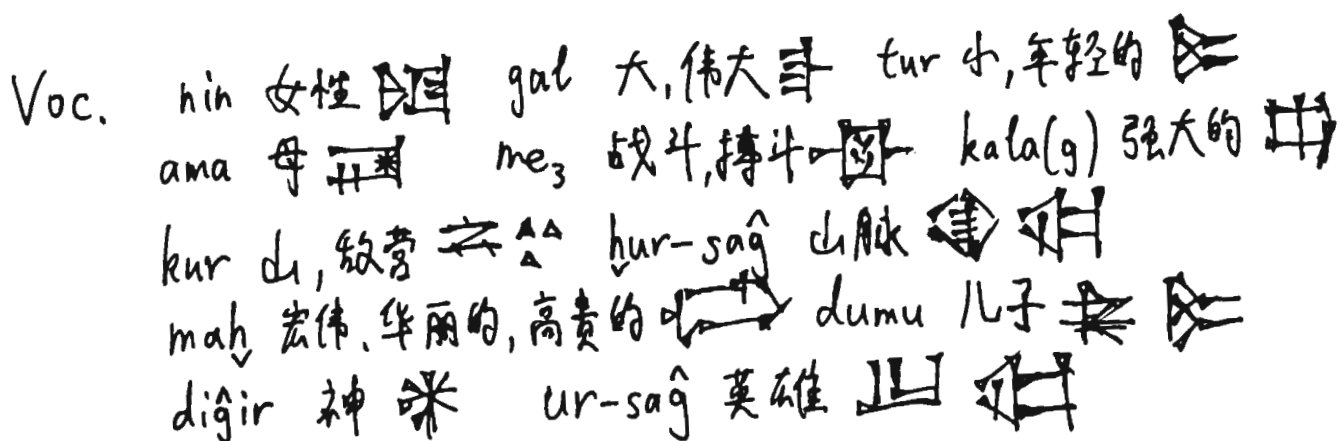 Voc. nin 女性 𒎏 gal 大,伟大 𒃲 tur 小,年轻的 𒌉
ama 母 𒂼 me₃ 战斗,搏斗 𒀟 kala(g) 强大的 𒆗
kur 山,敌营 𒆳 ḫur-saĝ 山脉 𒄯 𒊕
maḫ 宏伟、华丽的,高贵的 𒈤 dumu 儿子 𒌉
diĝir 神 𒀭 ur-saĝ 英雄 𒌨 𒊕